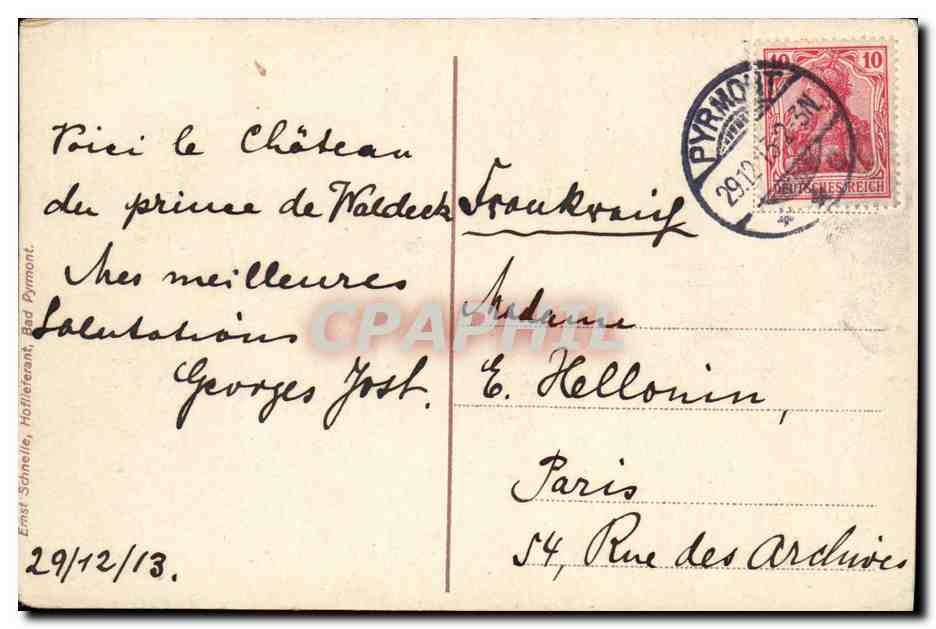 Voici le Château
du prince de Waldeck
Mes meilleures
Salutations
Georges Jost.
29/12/13.
Ernst Schnelle, Hoflieferant, Bad Pyrmont.
10 10
DEUTSCHES REICH
PYRMONT
29.12.13. 2-3N.
Frankreich
Madame
E. Hellonin,
Paris
54, Rue des Archives
CPAPHIL